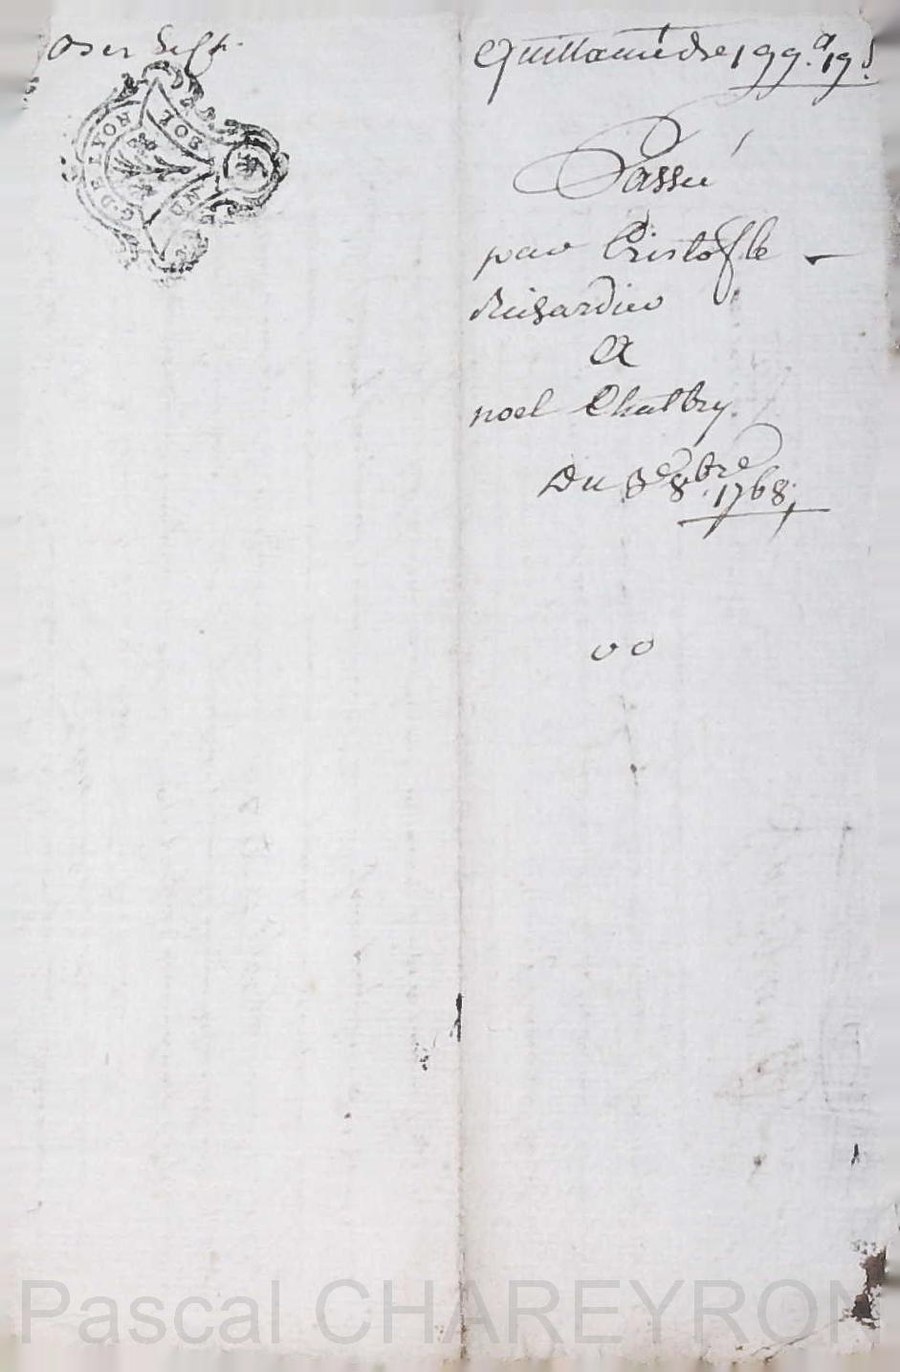 G. DE LYON
SOL
Quittance de 199ll 19s
Passé
par Cristofle
Richardier
A
noel Chatby
Du 3e 8bre 1768
Pascal CHAREYRON